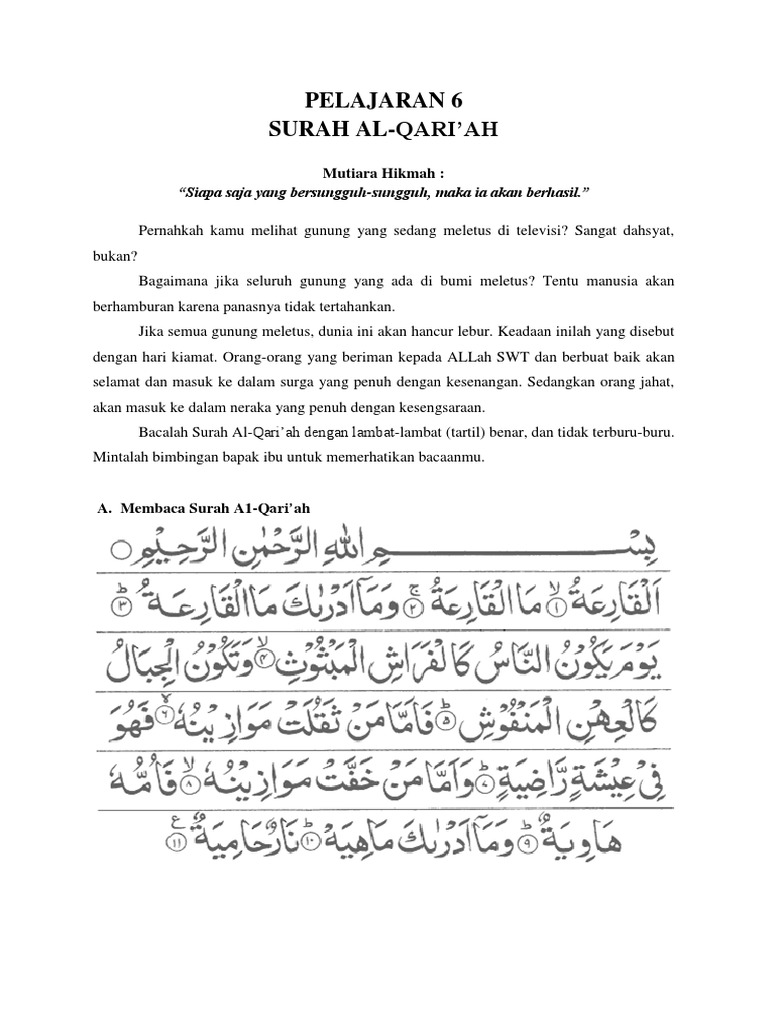 PELAJARAN 6
SURAH AL-QARI’AH
Mutiara Hikmah :
“Siapa saja yang bersungguh-sungguh, maka ia akan berhasil.”
Pernahkah kamu melihat gunung yang sedang meletus di televisi? Sangat dahsyat,
bukan?
Bagaimana jika seluruh gunung yang ada di bumi meletus? Tentu manusia akan
berhamburan karena panasnya tidak tertahankan.
Jika semua gunung meletus, dunia ini akan hancur lebur. Keadaan inilah yang disebut
dengan hari kiamat. Orang-orang yang beriman kepada ALLah SWT dan berbuat baik akan
selamat dan masuk ke dalam surga yang penuh dengan kesenangan. Sedangkan orang jahat,
akan masuk ke dalam neraka yang penuh dengan kesengsaraan.
Bacalah Surah Al-Qari’ah dengan lambat-lambat (tartil) benar, dan tidak terburu-buru.
Mintalah bimbingan bapak ibu untuk memerhatikan bacaanmu.
A. Membaca Surah A1-Qari’ah
بِسْـــــــمِ اللهِ الرَّحْمٰنِ الرَّحِيْمِ ○
اَلْقَارِعَةُ ۙ﴿١﴾ مَا الْقَارِعَةُ ۚ﴿٢﴾ وَمَآ اَدْرٰىكَ مَا الْقَارِعَةُ ۗ﴿٣﴾
يَوْمَ يَكُوْنُ النَّاسُ كَالْفَرَاشِ الْمَبْثُوْثِ ۙ﴿٤﴾ وَتَكُوْنُ الْجِبَالُ
كَالْعِهْنِ الْمَنْفُوْشِ ۗ﴿٥﴾ فَاَمَّا مَنْ ثَقُلَتْ مَوَازِيْنُهٗ ۙ﴿٦﴾ فَهُوَ
فِيْ عِيْشَةٍ رَّاضِيَةٍ ۗ﴿٧﴾ وَاَمَّا مَنْ خَفَّتْ مَوَازِيْنُهٗ ۙ﴿٨﴾ فَاُمُّهٗ
هَاوِيَةٌ ۗ﴿٩﴾ وَمَآ اَدْرٰىكَ مَا هِيَهْ ۗ﴿١٠﴾ نَارٌ حَامِيَةٌ ࣖ﴿١١﴾